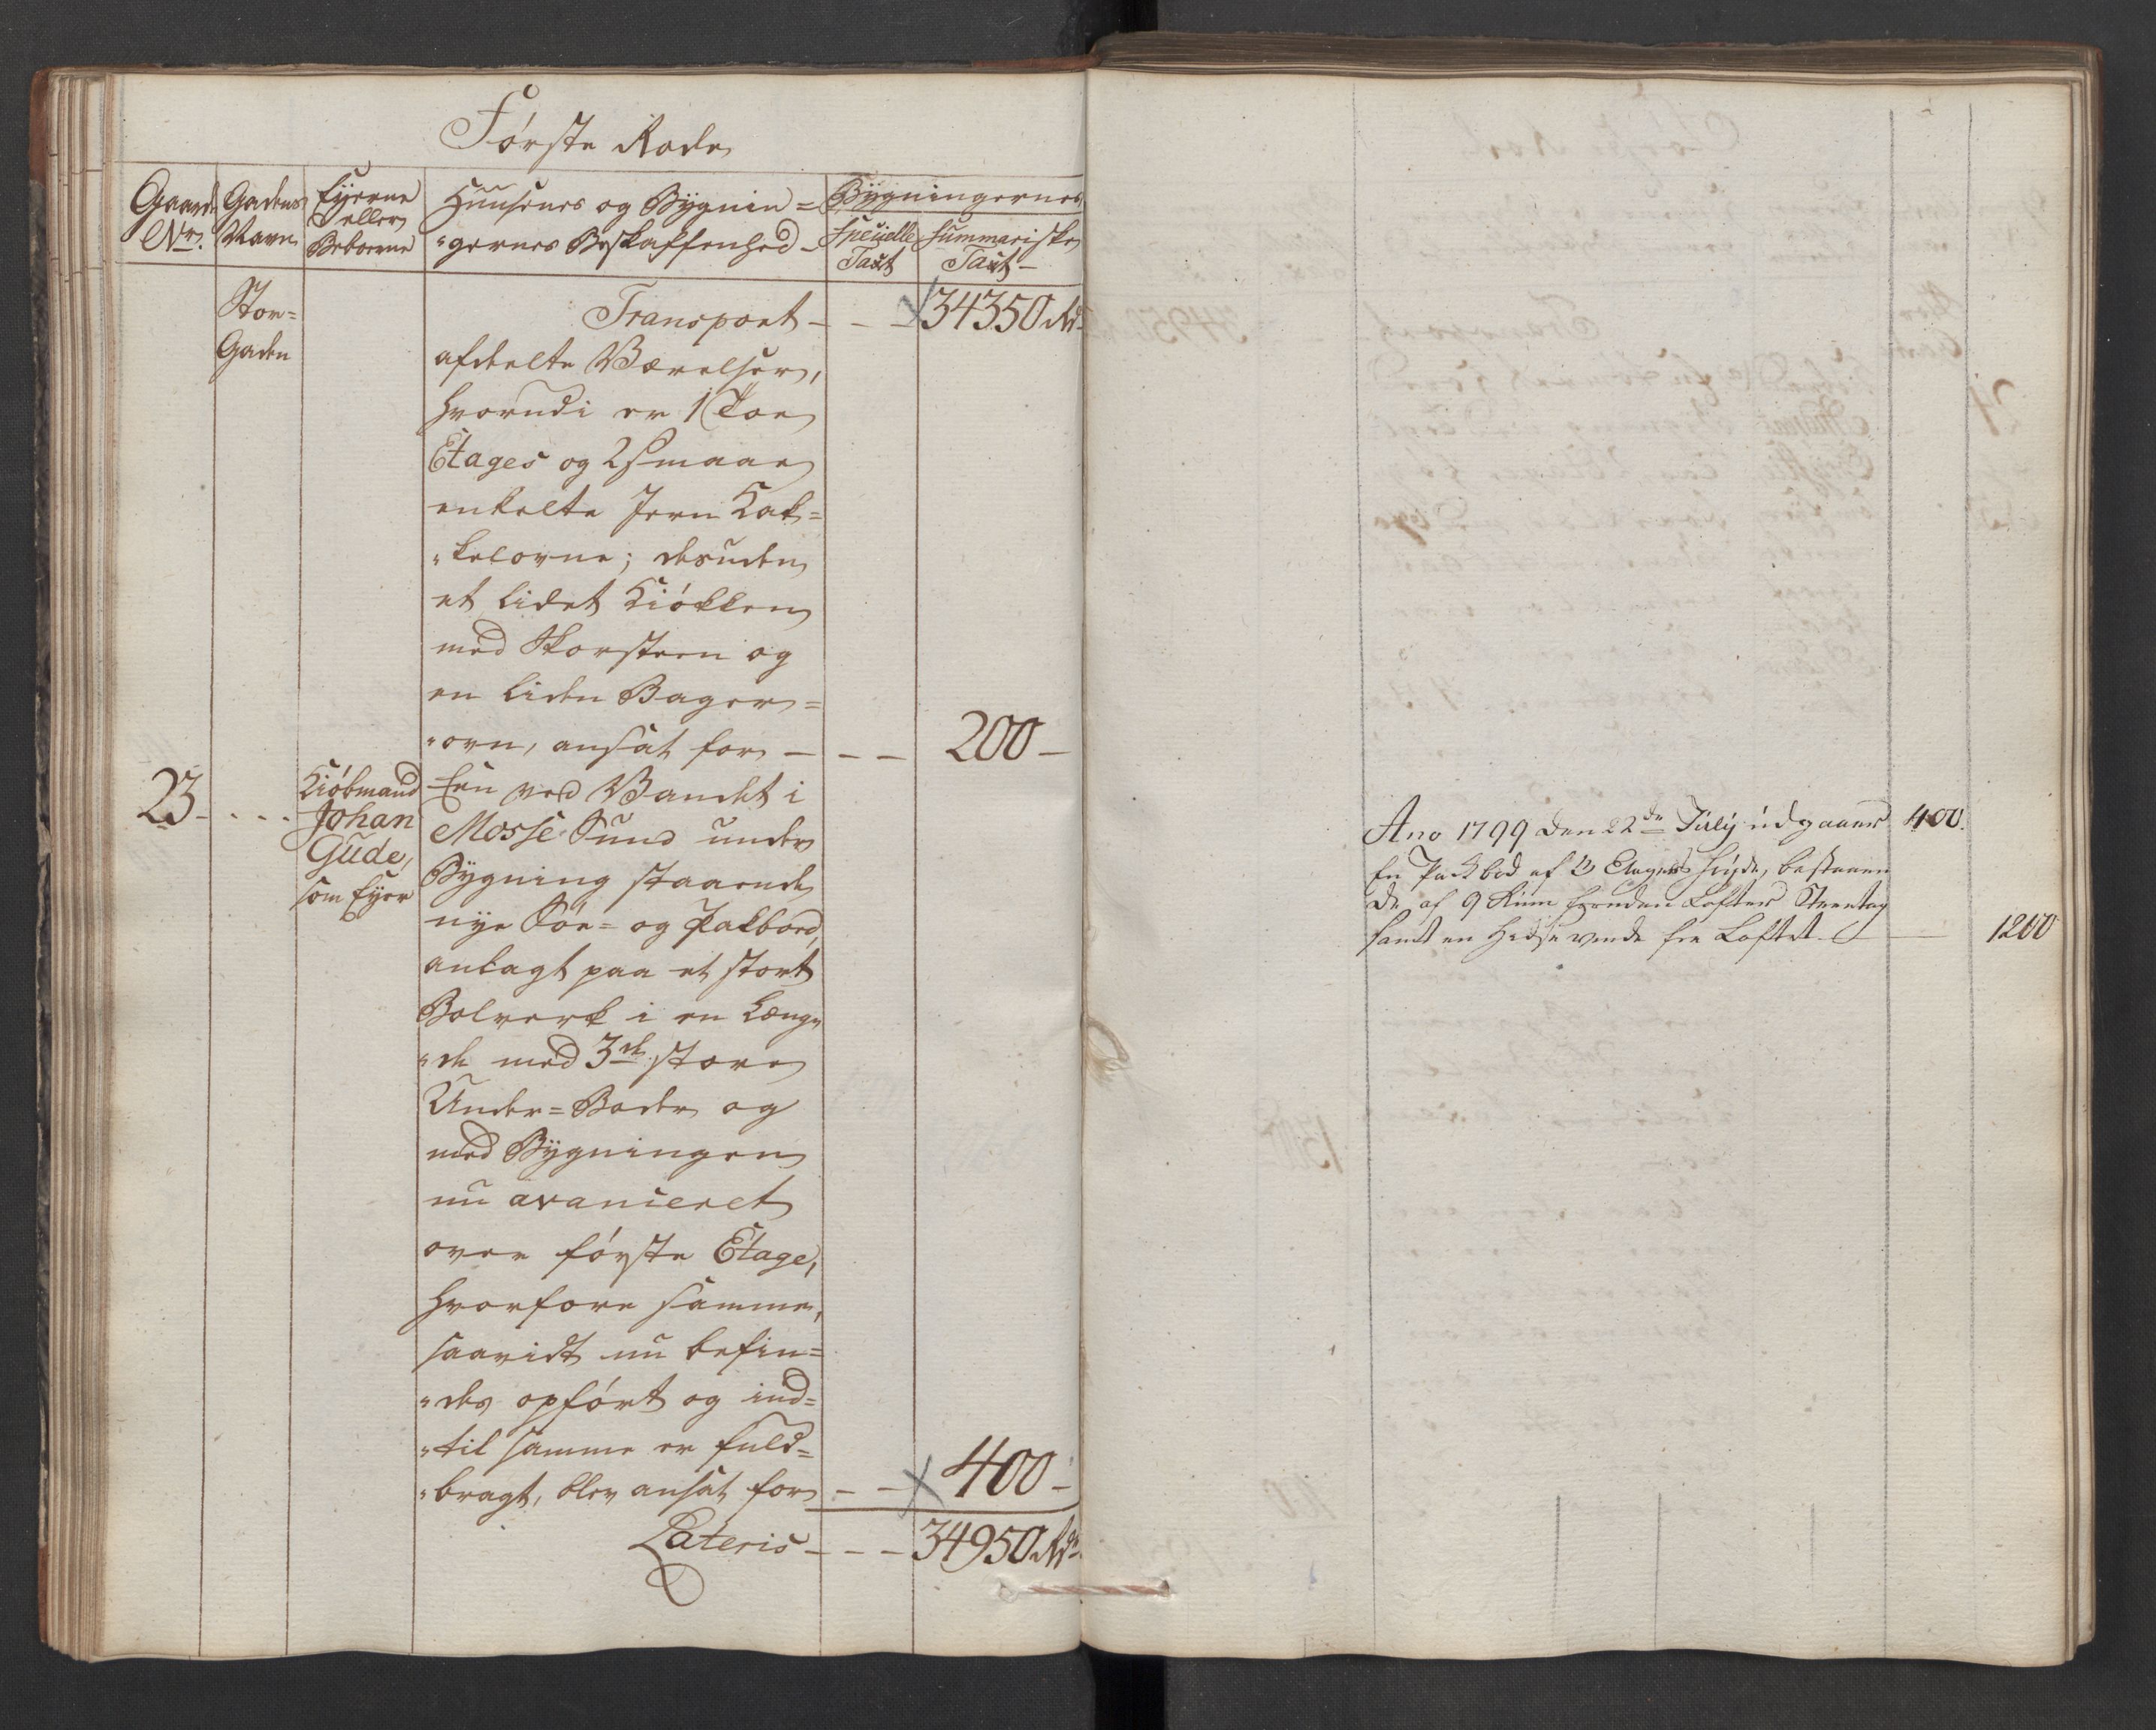 Første Rode
Gaard Nr.
Gadens Navn
Eyerne eller Beboerne
Huusenes og Bygnin=
"gernes Beskaffenhed
Bygningernes
Specielle Taxt
Summariske Taxt
Stor=
Gaden
Transport - - - 34350 Rd
afdeelte Værelser,
hvorudi er 1 Toe
Etages og 2 smaae
enkelte Jern Kak=
"kelovne; desuden
et lidet Kiøkken
med Skorsteen og
en liden Bager=
"ovn, ansat for - - - 200 -
23 - . . .
Kiøbmand
Johan
Gude,
som Eyer
Een ved Vandet i
Mosse Sund under
Bygning staaende
nye Søe= og Pakboed,
anlagt paa et stort
Bolverk i en Læng=
"de med 3de store
Under=Boder og
med Bygningen
nu avanceret
over første Etage,
hvorfore samme,
saavidt nu befin=
"des opført og ind=
"til samme er fuld=
"bragt, blev ansat for - - 400 -
Lateris - - - 34950 Rdr
Ano 1799 den 22de July udgaaer 400.
En Packbod af 3 Etagers Høyde, bestaaen
de af 9 Rum foruden Lofter Steentag
samt en Heise vinde fra Loftet - 1200